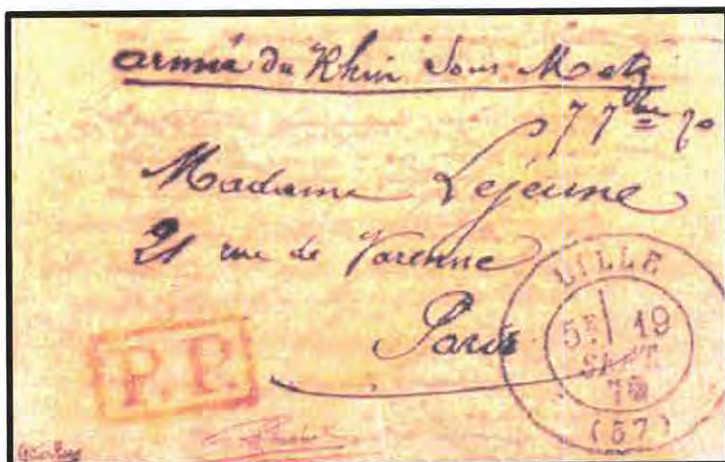 armée du Rhin sous Metz
7 7bre 70
Madame Lejeune
21 rue de Varenne
Paris
P.P.
LILLE
5E 19
SEPT
70
(57)